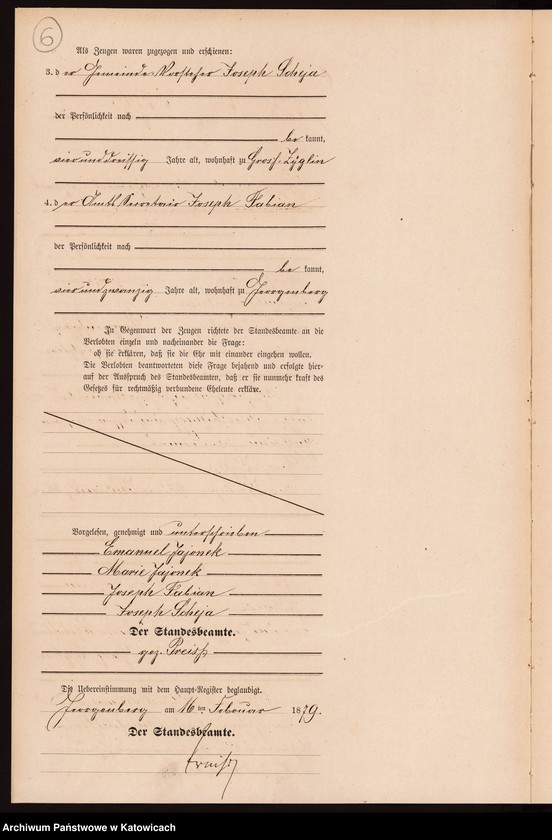 6
Als Zeugen waren zugezogen und erschienen:
3. der Gemeinde Vorsteher Joseph Scheja
der Persönlichkeit nach
bekannt,
vierunddreißig Jahre alt, wohnhaft zu Groß Zyglin
4. der Amts Secretair Joseph Fabian
der Persönlichkeit nach
bekannt,
vierundzwanzig Jahre alt, wohnhaft zu Georgenberg
In Gegenwart der Zeugen richtete der Standesbeamte an die
Verlobten einzeln und nacheinander die Frage:
ob sie erklären, daß sie die Ehe mit einander eingehen wollen.
Die Verlobten beantworteten diese Frage bejahend und erfolgte hier-
auf der Ausspruch des Standesbeamten, daß er sie nunmehr kraft des
Gesetzes für rechtmäßig verbundene Eheleute erkläre.
Vorgelesen, genehmigt und unterschrieben
Emanuel Jajonek
Marie Jajonek
Joseph Fabian
Joseph Scheja
Der Standesbeamte.
gez. Preiß
Die Uebereinstimmung mit dem Haupt-Register beglaubigt.
Georgenberg am 16ten Februar 1879.
Der Standesbeamte.
Preiß
Archiwum Państwowe w Katowicach